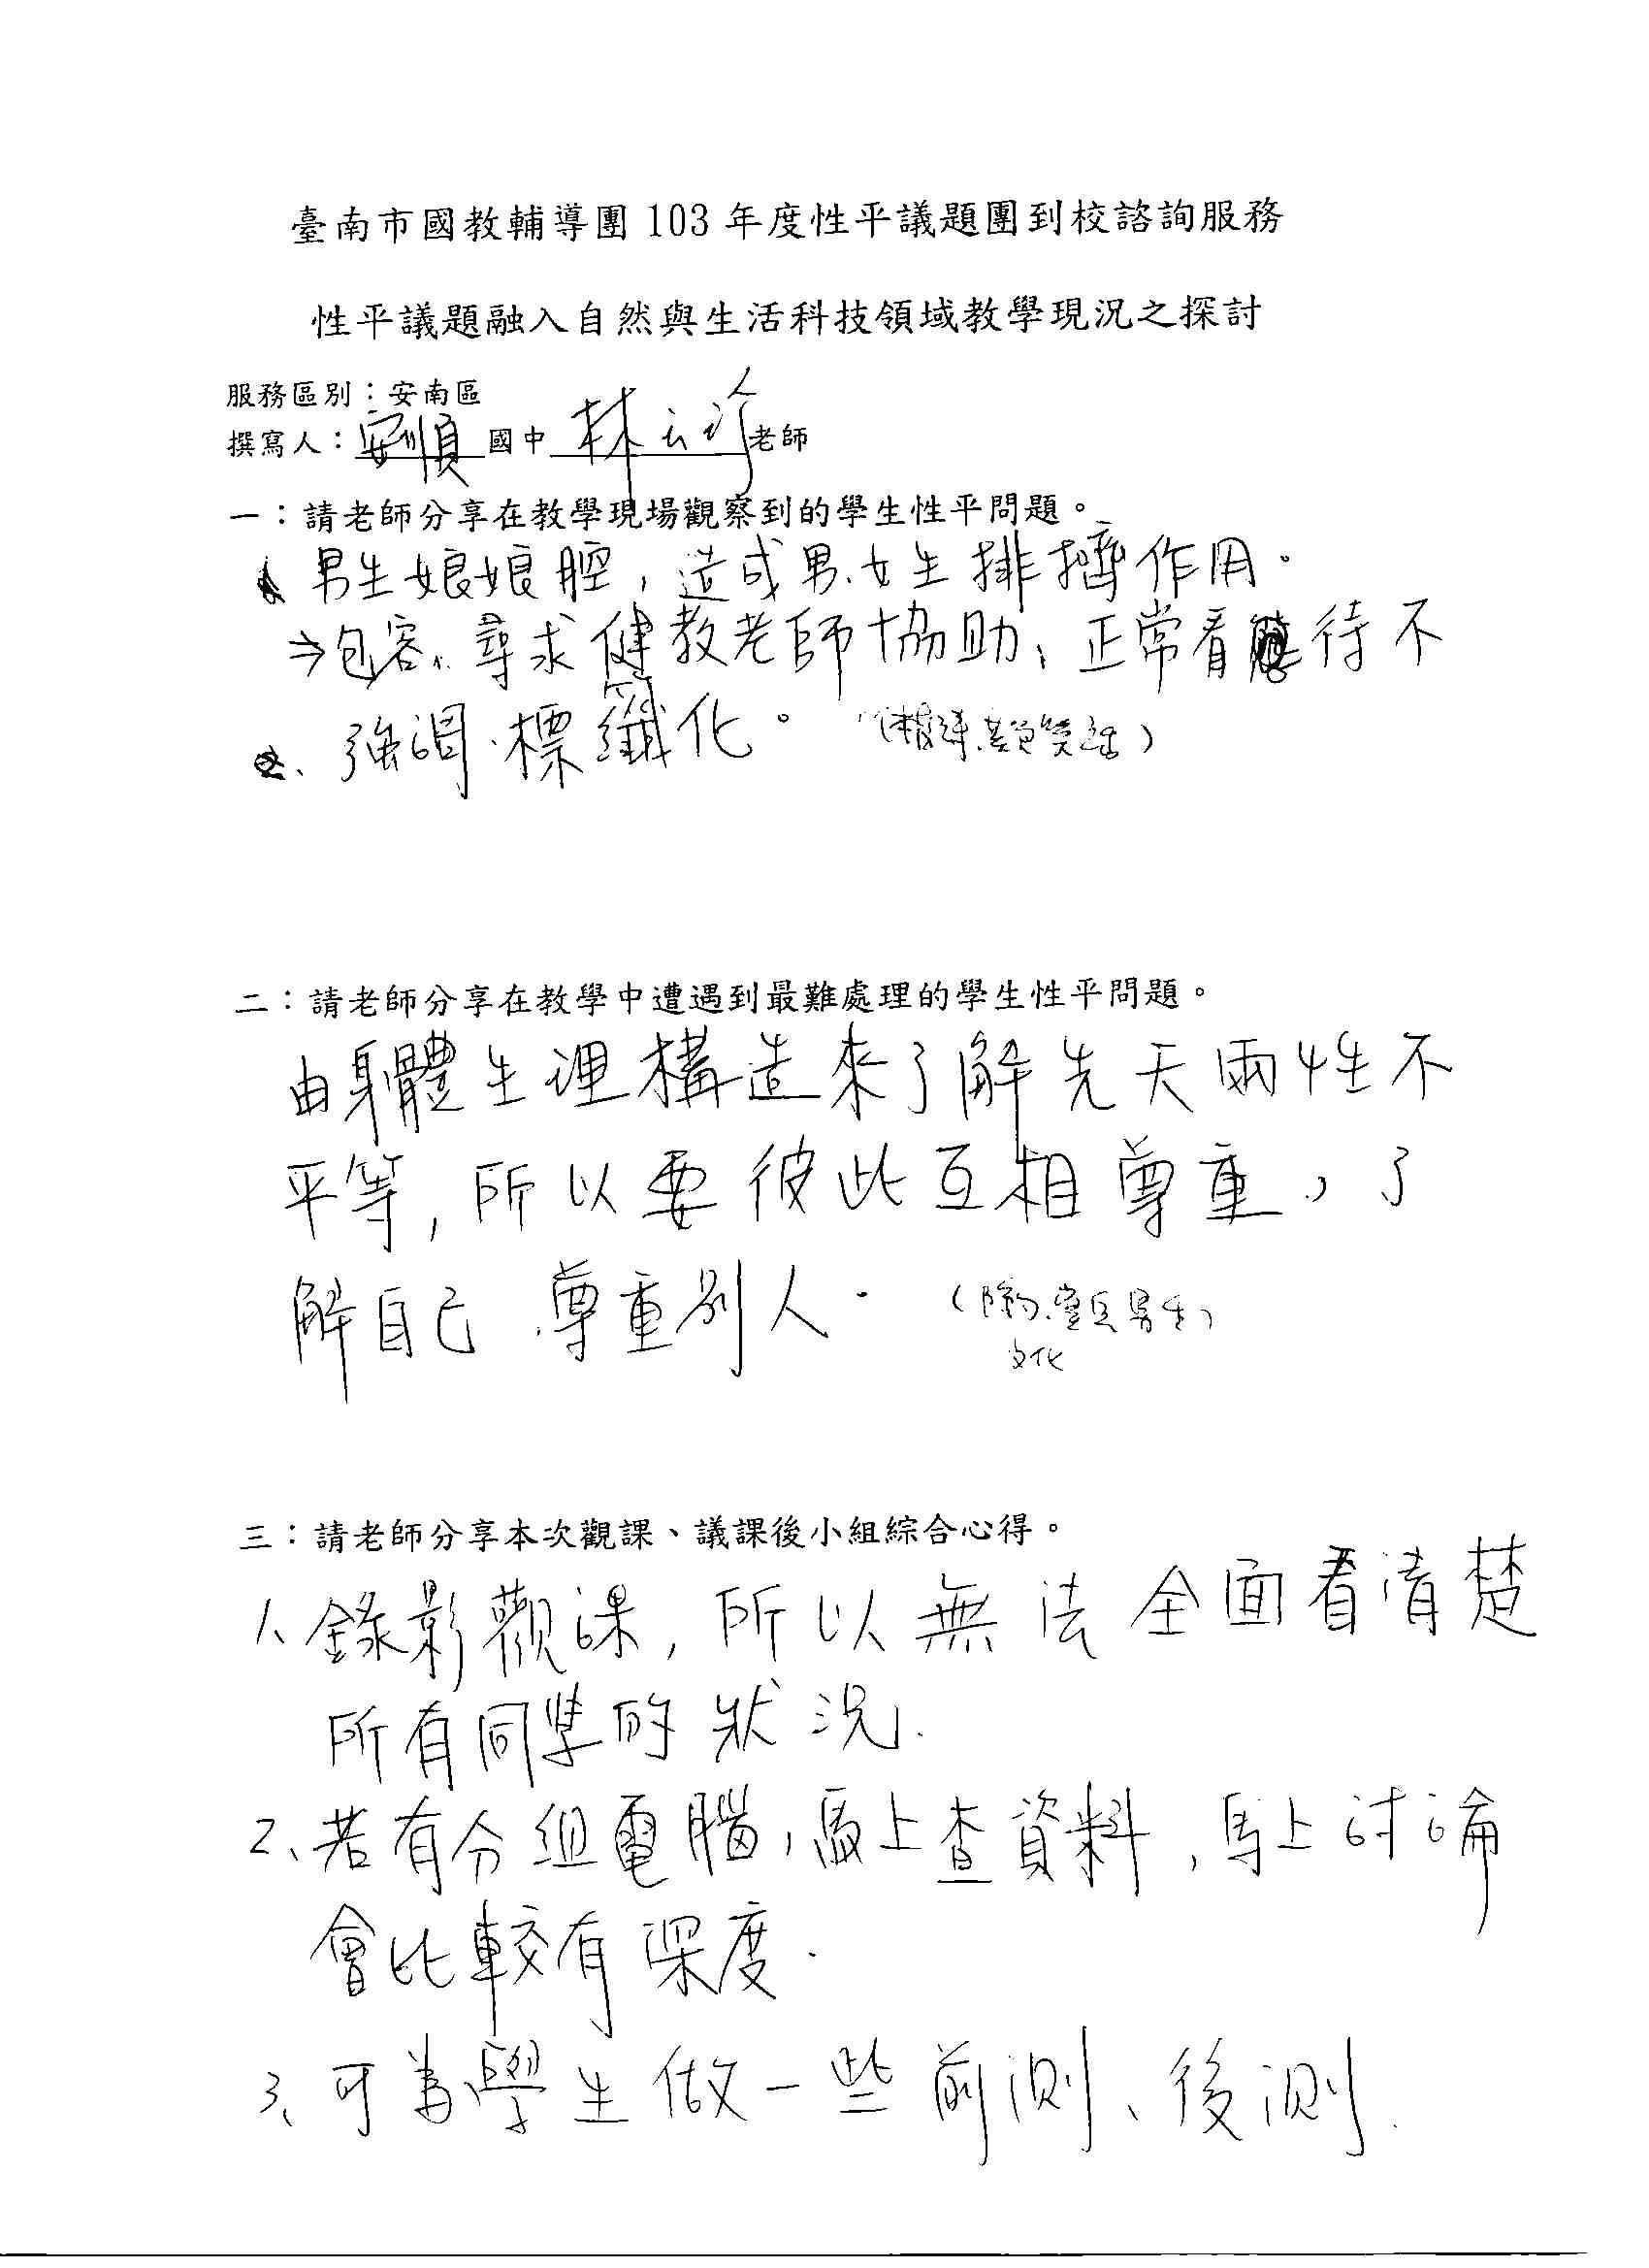 臺南市國教輔導團 103 年度性平議題團到校諮詢服務
性平議題融入自然與生活科技領域教學現況之探討
服務區別：安南區
撰寫人：安順國中 林 老師
一：請老師分享在教學現場觀察到的學生性平問題。
1、男生娘娘腔，造成男、女生排擠作用。
⇒包容、尋求健教老師協助、正常看待不
強調、標纖化。
二：請老師分享在教學中遭遇到最難處理的學生性平問題。
由身體生理構造來了解先天兩性不
平等，所以要彼此互相尊重，了
解自己、尊重別人。
文化
三：請老師分享本次觀課、議課後小組綜合心得。
1、錄影觀課，所以無法全面看清楚
所有同學的狀況.
2、若有分組電腦，馬上查資料，馬上討論
會比較有深度.
3、可為學生做一些前測、後測.